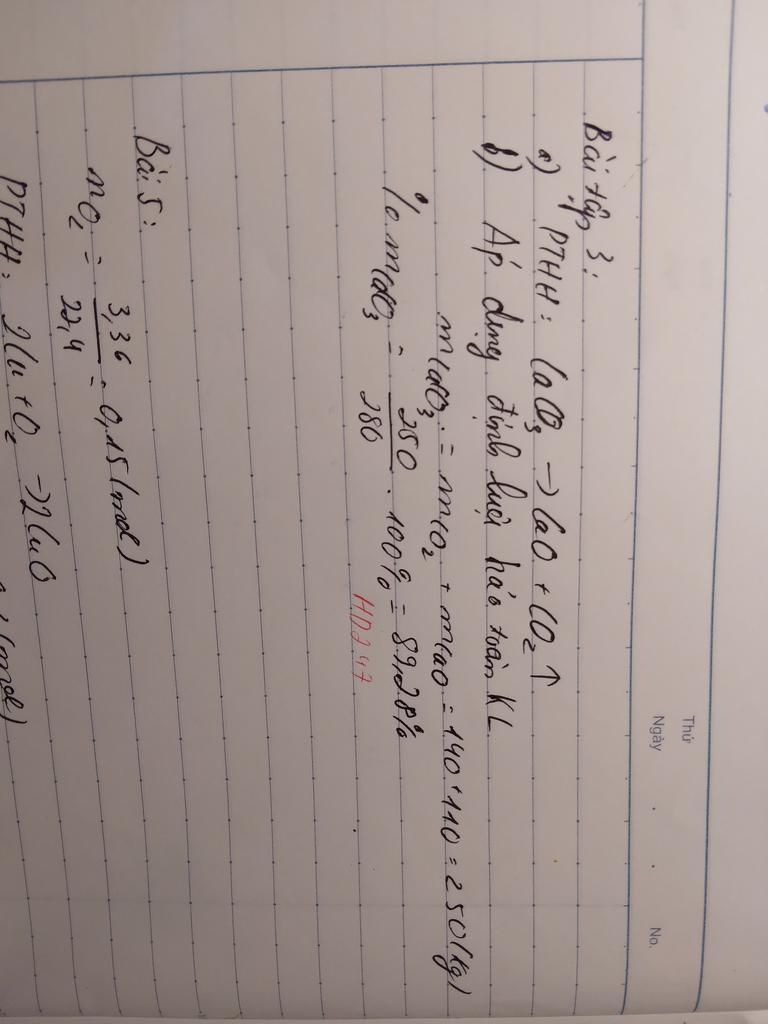 Thứ
Ngày . . No.
Bài tập 3:
a) PTHH: CaCO3 -> CaO + CO2 ↑
b) Áp dụng định luật bảo toàn KL
mCaCO3 = mCO2 + mCaO = 140 + 110 = 250 (kg)
% mCaCO3 = 250/280 . 100% = 89,28%
HD247
Bài 5:
nO2 = 3,36/22,4 = 0,15 (mol)
PTHH: 2Cu + O2 -> 2CuO
(mol)